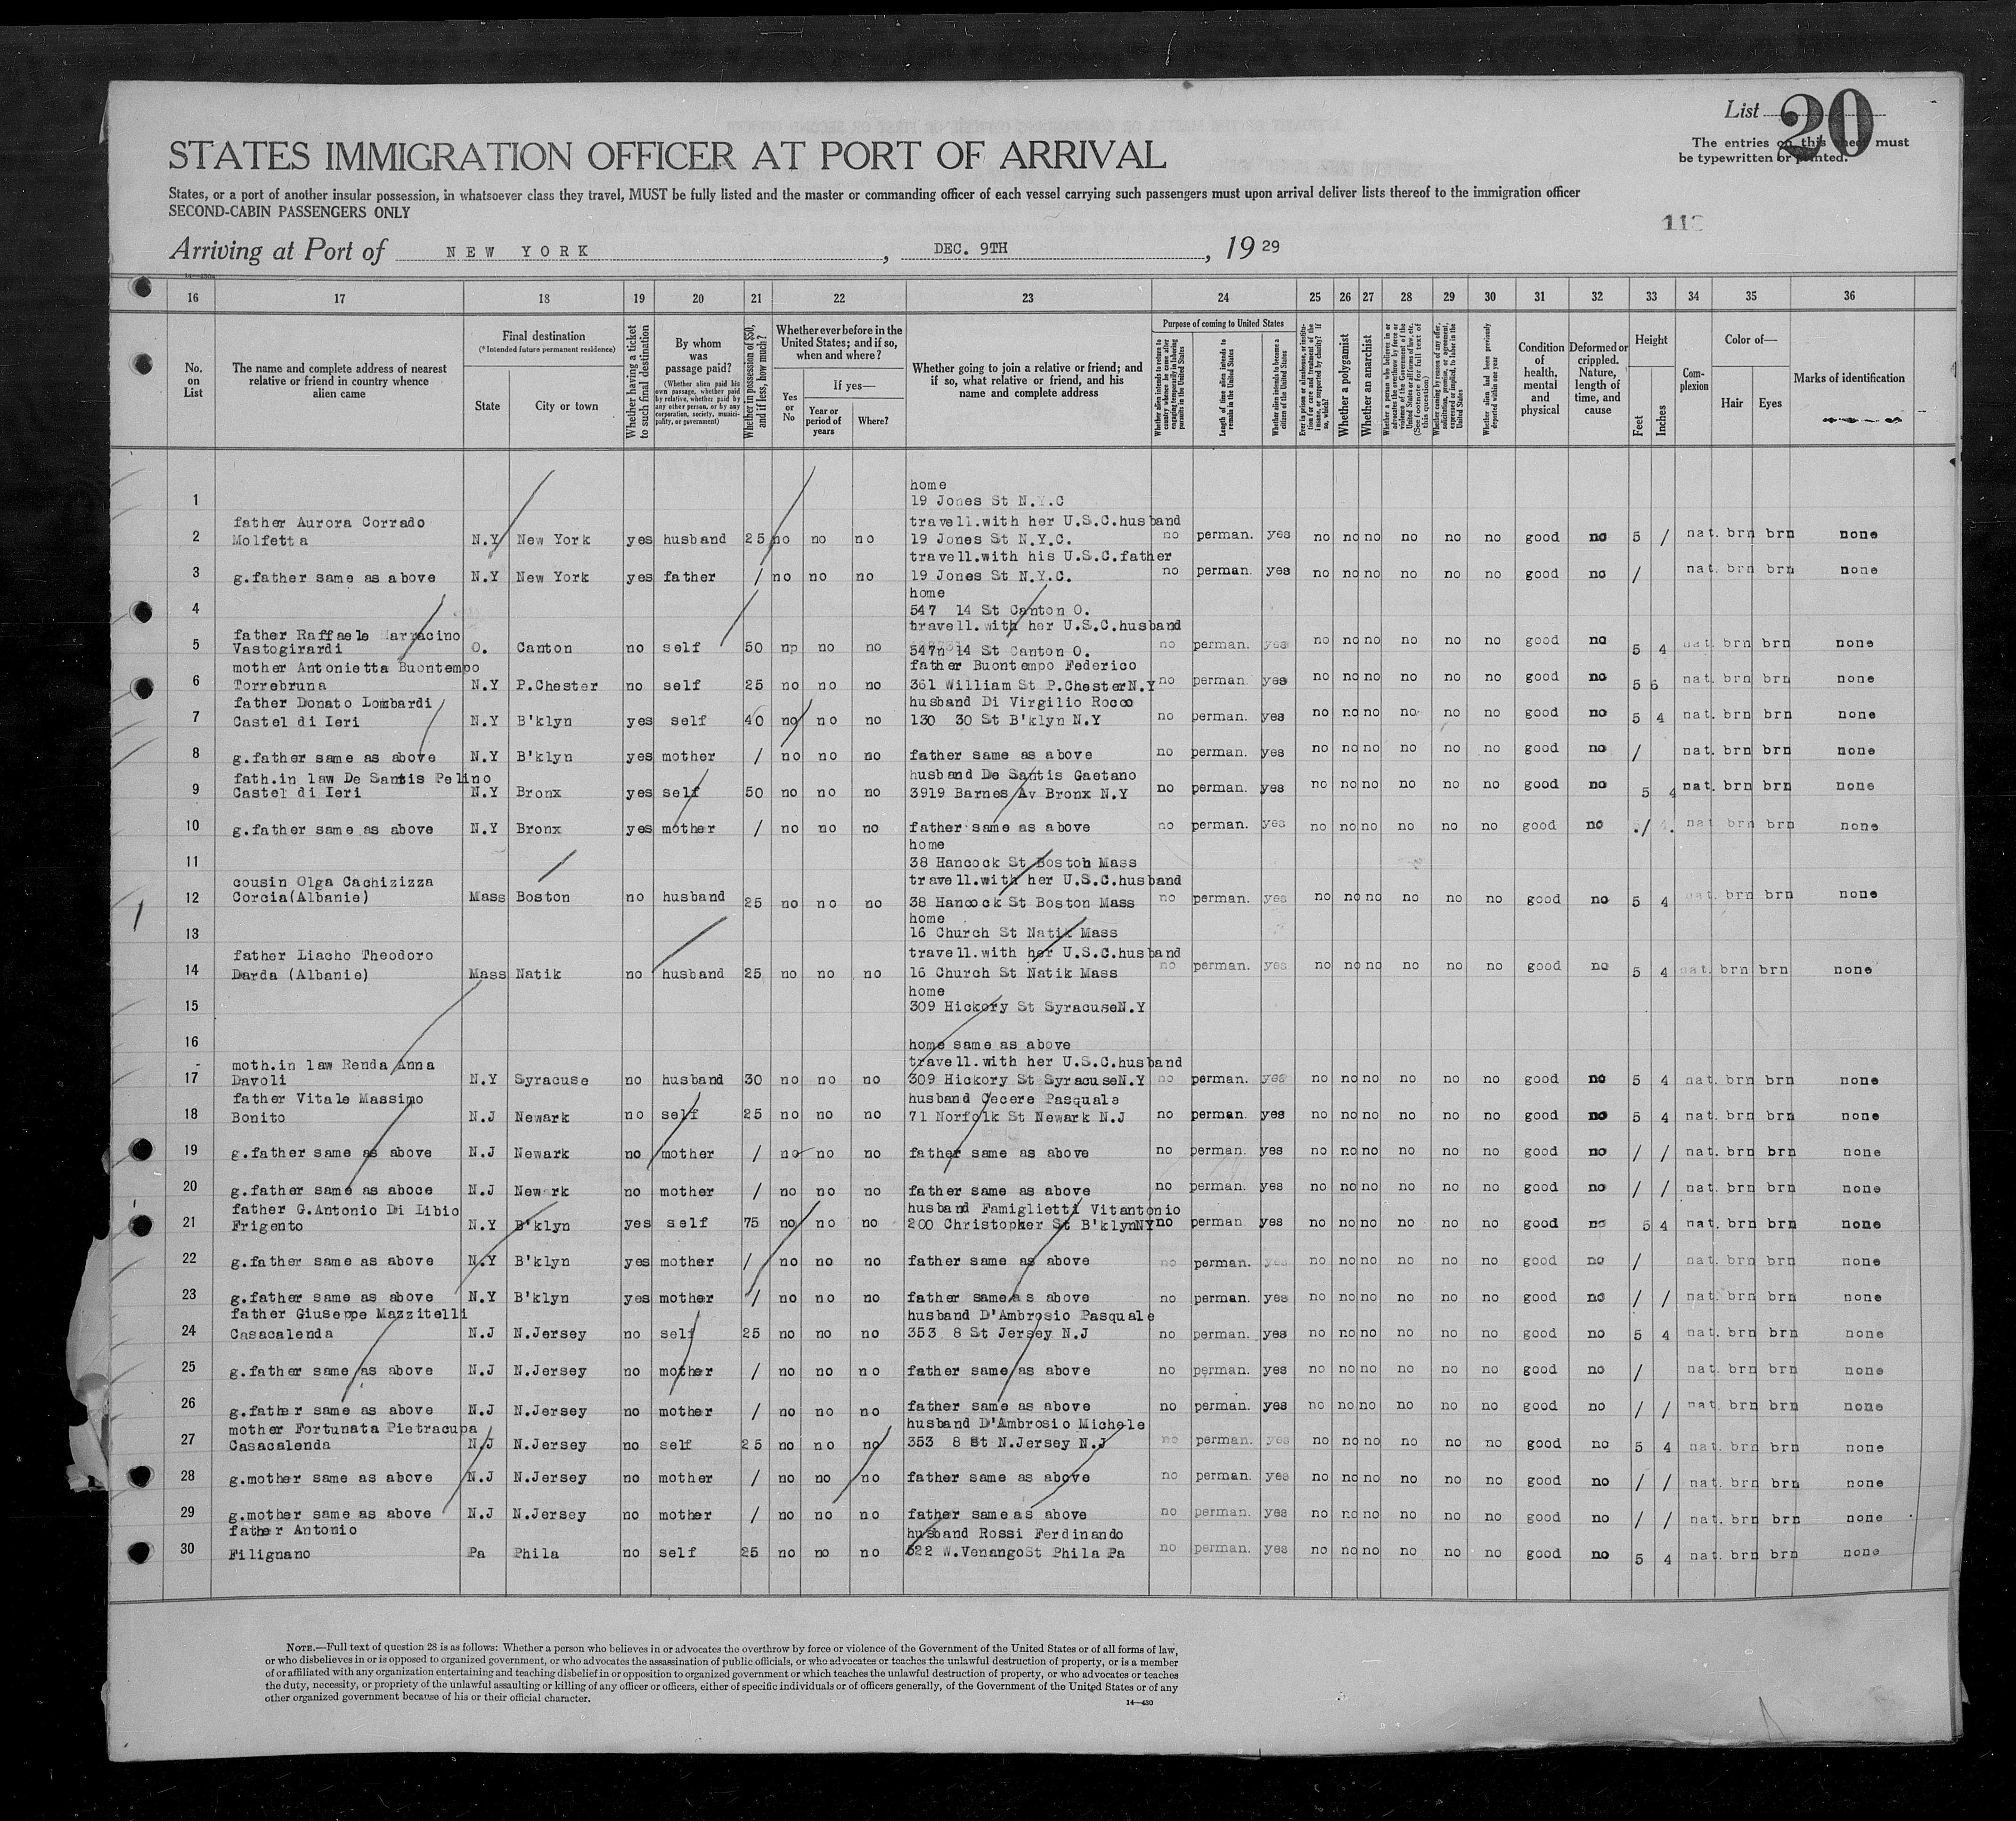 List 20
The entries on this sheet must
be typewritten or printed.
STATES IMMIGRATION OFFICER AT PORT OF ARRIVAL
States, or a port of another insular possession, in whatsoever class they travel, MUST be fully listed and the master or commanding officer of each vessel carrying such passengers must upon arrival deliver lists thereof to the immigration officer
SECOND-CABIN PASSENGERS ONLY
Arriving at Port of NEW YORK, DEC. 9TH, 1929
16 17 18 19 20 21 22 23 24 25 26 27 28 29 30 31 32 33 34 35 36
No. on List
The name and complete address of nearest relative or friend in country whence alien came
Final destination
(*Intended future permanent residence)
State
City or town
Whether having a ticket to such final destination
By whom was passage paid?
(Whether alien paid his own passage, whether paid by relative, whether paid by any other person, or by any corporation, society, municipality, or government)
Whether in possession of $50, and if less, how much?
Whether ever before in the United States; and if so, when and where?
Yes or No
If yes—
Year or period of years
Where?
Whether going to join a relative or friend; and if so, what relative or friend, and his name and complete address
Purpose of coming to United States
Whether alien intends to return to country whence he came after engaging temporarily in laboring pursuits in the United States
Length of time alien intends to remain in the United States
Whether alien intends to become a citizen of the United States
Ever in prison or almshouse, or institution for care and treatment of the insane, or supported by charity? If so, which?
Whether a polygamist
Whether an anarchist
Whether a person who believes in or advocates the overthrow by force or violence of the Government of the United States or all forms of law, etc. (See footnote for full text of this question)
Whether coming by reason of any offer, solicitation, promise, or agreement, expressed or implied, to labor in the United States
Whether alien had been previously deported within one year
Condition of health, mental and physical
Deformed or crippled. Nature, length of time, and cause
Height
Feet
Inches
Complexion
Color of—
Hair
Eyes
Marks of identification
home
1 19 Jones St N.Y.C
father Aurora Corrado travell.with her U.S.C.husband
2 Molfetta N.Y New York yes husband 25 no no no 19 Jones St N.Y.C. no perman. yes no no no no no no good no 5 / nat. brn brn none
travell.with his U.S.C.father
3 g.father same as above N.Y New York yes father / no no no 19 Jones St N.Y.C. no perman. yes no no no no no no good no / nat. brn brn none
home
4 547 14 St Canton O.
father Raffaele Marracino travell.with her U.S.C.husband
5 Vastogirardi O. Canton no self 50 np no no 547n 14 St Canton O. no perman. yes no no no no no no good no 5 4 nat. brn brn none
mother Antonietta Buontempo father Buontempo Federico
6 Torrebruna N.Y P.Chester no self 25 no no no 361 William St P.ChesterN.Y no perman. yes no no no no no no good no 5 6 nat. brn brn none
father Donato Lombardi husband Di Virgilio Rocco
7 Castel di Ieri N.Y B'klyn yes self 40 no no no 130 30 St B'klyn N.Y no perman. yes no no no no no no good no 5 4 nat. brn brn none
8 g.father same as above N.Y B'klyn yes mother / no no no father same as above no perman. yes no no no no no no good no / nat. brn brn none
fath.in law De Santis Pelino husband De Santis Gaetano
9 Castel di Ieri N.Y Bronx yes self 50 no no no 3919 Barnes Av Bronx N.Y no perman. yes no no no no no no good no 5 4 nat. brn brn none
10 g.father same as above N.Y Bronx yes mother / no no no father same as above no perman. yes no no no no no no good no / nat brn brn none
home
11 38 Hancock St Boston Mass
cousin Olga Cachizizza travell.with her U.S.C.husband
12 Corcia(Albanie) Mass Boston no husband 25 no no no 38 Hancock St Boston Mass no perman. yes no no no no no no good no 5 4 nat. brn brn none
home
13 16 Church St Natik Mass
father Liacho Theodoro travell.with her U.S.C.husband
14 Darda (Albanie) Mass Natik no husband 25 no no no 16 Church St Natik Mass no perman. yes no no no no no no good no 5 4 nat. brn brn none
home
15 309 Hickory St SyracuseN.Y
16 home same as above
moth.in law Renda Anna travell.with her U.S.C.husband
17 Davoli N.Y Syracuse no husband 30 no no no 309 Hickory St SyracuseN.Y no perman. yes no no no no no no good no 5 4 nat. brn brn none
father Vitale Massimo husband Cecere Pasquale
18 Bonito N.J Newark no self 25 no no no 71 Norfolk St Newark N.J no perman. yes no no no no no no good no 5 4 nat. brn brn none
19 g.father same as above N.J Newark no mother / no no no father same as above no perman. yes no no no no no no good no / / nat. brn brn none
20 g.father same as aboce N.J Newark no mother / no no no father same as above no perman. yes no no no no no no good no / / nat. brn brn none
father G.Antonio Di Libio husband Famiglietti Vitantonio
21 Frigento N.Y B'klyn yes self 75 no no no 200 Christopher St B'klynNY no perman yes no no no no no no good no 5 4 nat. brn brn none
22 g.father same as above N.Y B'klyn yes mother / no no no father same as above no perman. yes no no no no no no good no / nat. brn brn none
23 g.father same as above N.Y B'klyn yes mother / no no no father same as above no perman. yes no no no no no no good no / / nat. brn brn none
father Giuseppe Mazzitelli husband D'Ambrosio Pasquale
24 Casacalenda N.J N.Jersey no self 25 no no no 353 8 St Jersey N.J no perman. yes no no no no no no good no 5 4 nat. brn brn none
25 g.father same as above N.J N.Jersey no mother / no no no father same as above no perman. yes no no no no no no good no / nat. brn brn none
26 g.father same as above N.J N.Jersey no mother / no no no father same as above no perman. yes no no no no no no good no / / nat. brn brn none
mother Fortunata Pietracupa husband D'Ambrosio Michele
27 Casacalenda N.J N.Jersey no self 25 no no no 353 8 St N.Jersey N.J no perman. yes no no no no no no good no 5 4 nat. brn brn none
28 g.mother same as above N.J N.Jersey no mother / no no no father same as above no perman. yes no no no no no no good no / / nat. brn brn none
29 g.mother same as above N.J N.Jersey no mother / no no no father same as above no perman. yes no no no no no no good no / / nat. brn brn none
father Antonio husband Rossi Ferdinando
30 Filignano Pa Phila no self 25 no no no 622 W.VenangoSt Phila Pa no perman. yes no no no no no no good no 5 4 nat. brn brn none
NOTE.—Full text of question 28 is as follows: Whether a person who believes in or advocates the overthrow by force or violence of the Government of the United States or of all forms of law,
or who disbelieves in or is opposed to organized government, or who advocates the assassination of public officials, or who advocates or teaches the unlawful destruction of property, or is a member
of or affiliated with any organization entertaining and teaching disbelief in or opposition to organized government or which teaches the unlawful destruction of property, or who advocates or teaches
the duty, necessity, or propriety of the unlawful assaulting or killing of any officer or officers, either of specific individuals or of officers generally, of the Government of the United States or of any
other organized government because of his or their official character.
14—430